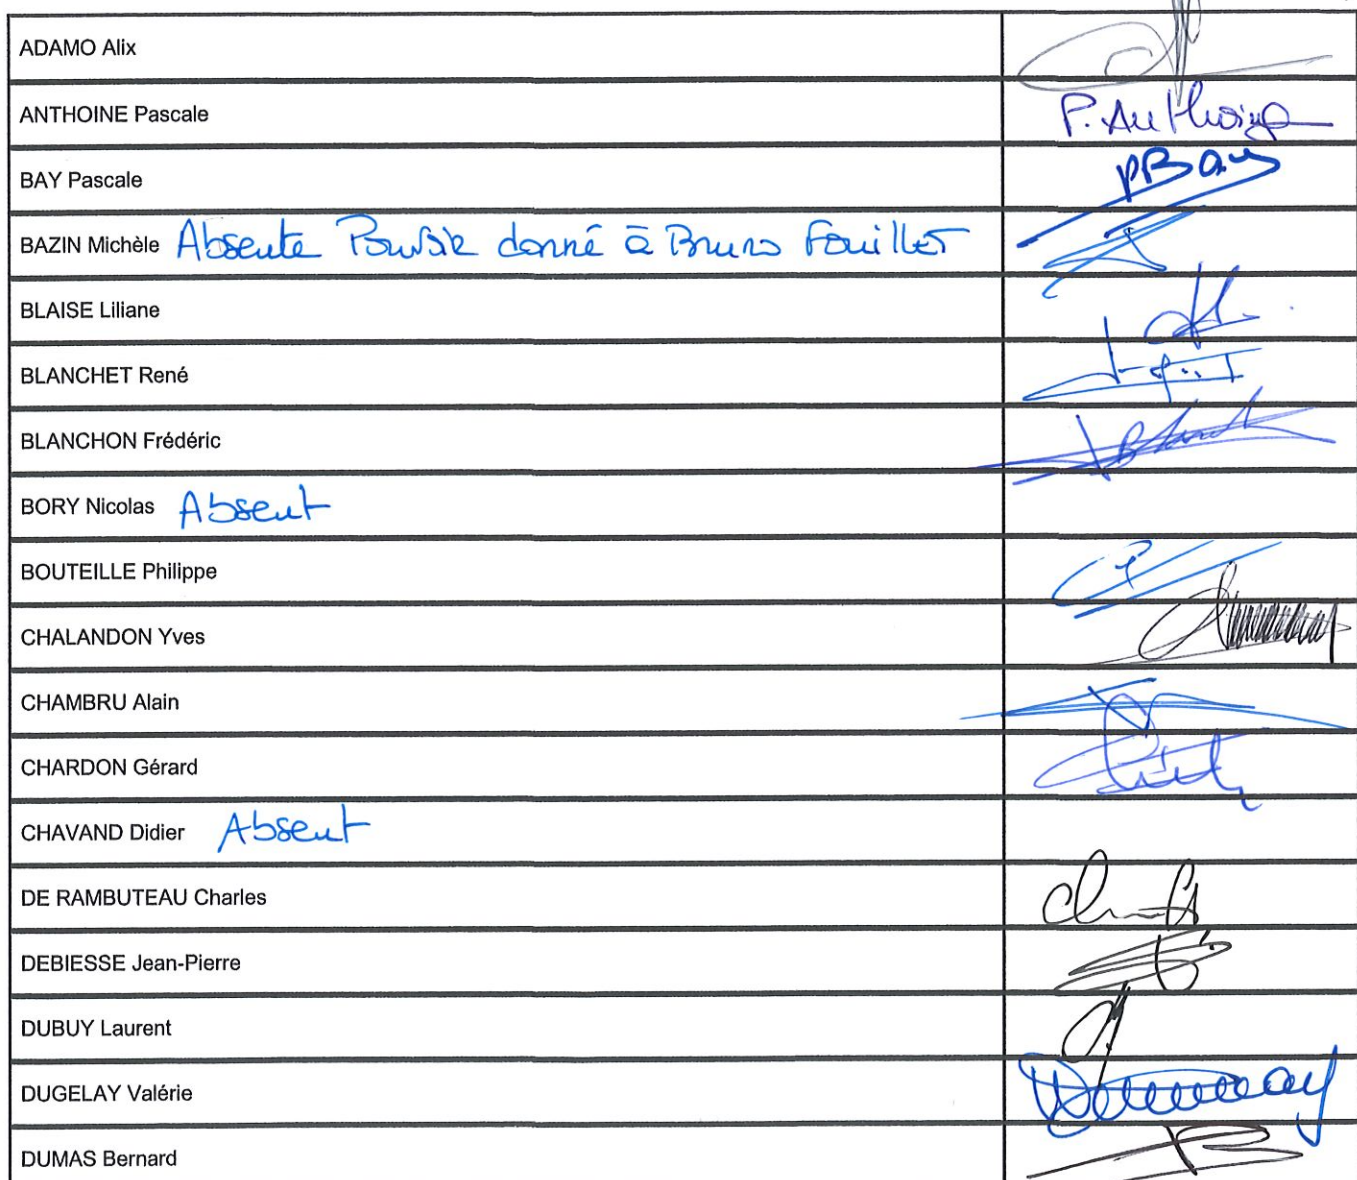 ADAMO Alix
ANTHOINE Pascale P. Anthoine
BAY Pascale PBay
BAZIN Michèle Absente Pouvoir donné à Bruno Fouillet
BLAISE Liliane
BLANCHET René
BLANCHON Frédéric
BORY Nicolas Absent
BOUTEILLE Philippe
CHALANDON Yves
CHAMBRU Alain
CHARDON Gérard
CHAVAND Didier Absent
DE RAMBUTEAU Charles
DEBIESSE Jean-Pierre
DUBUY Laurent
DUGELAY Valérie
DUMAS Bernard